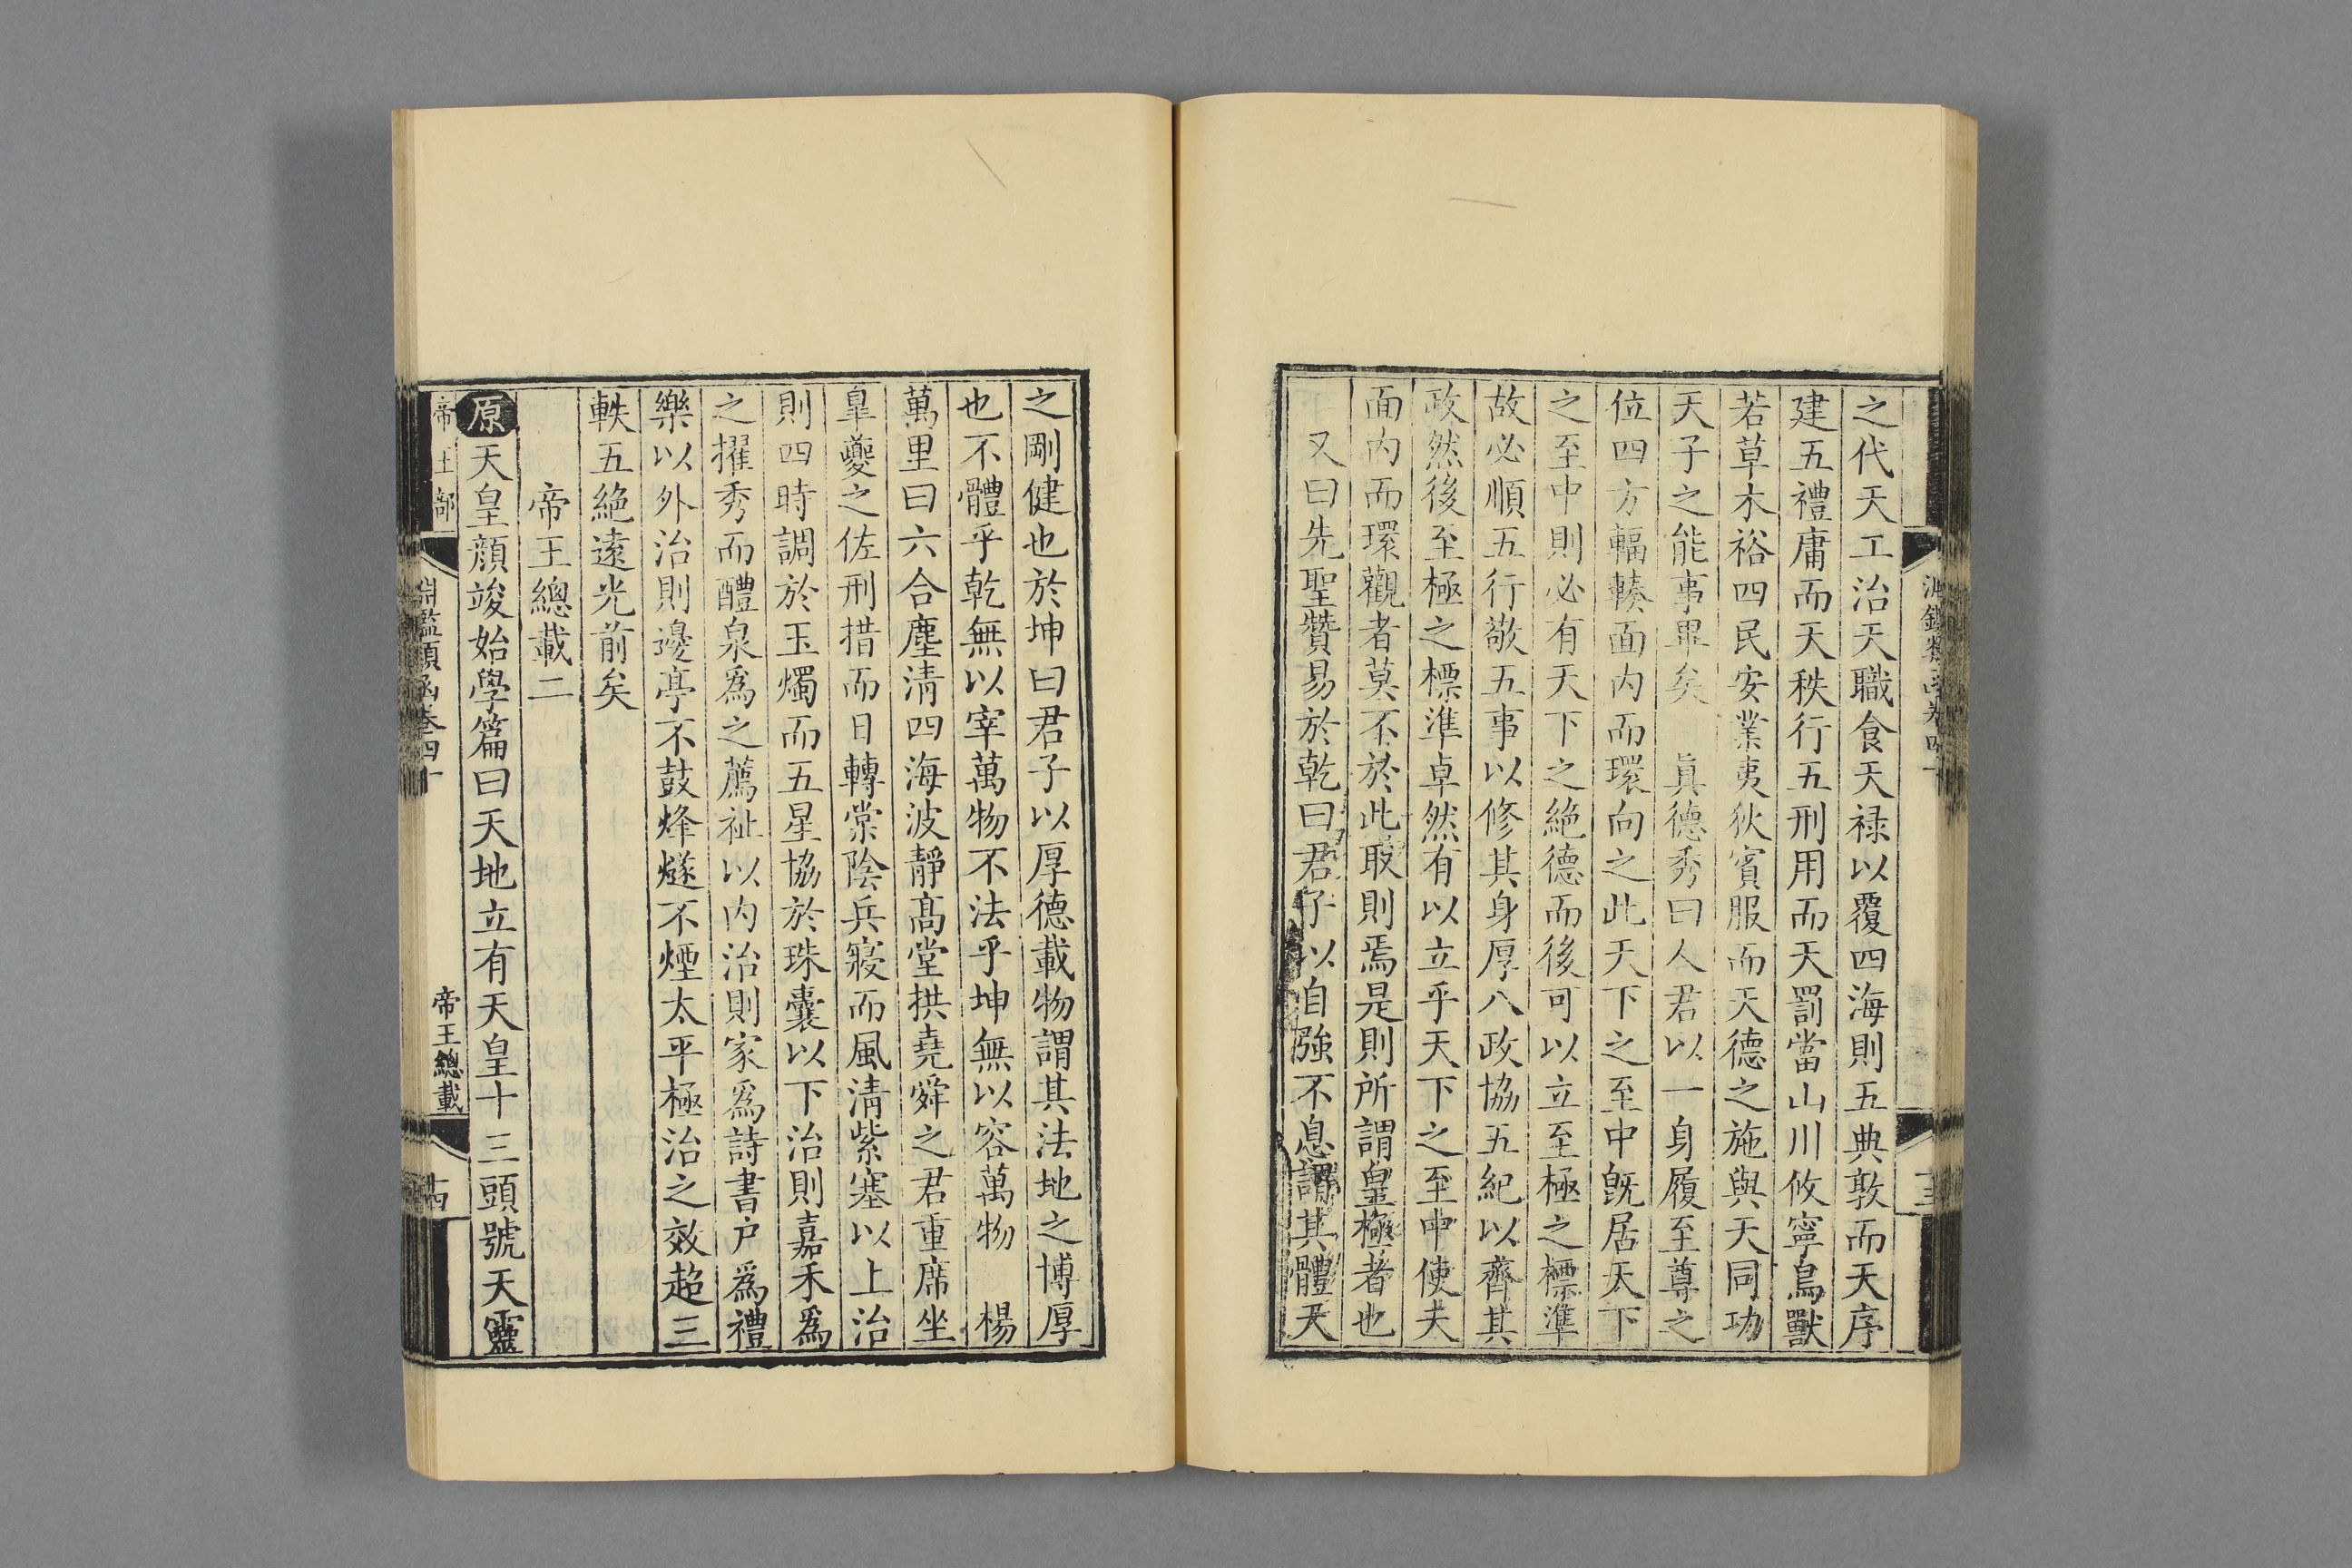 之代天工治天職食天禄以覆四海則五典敦而天序
建五禮庸而天秩行五刑用而天罰當山川攸寧鳥獸
若草木裕四民安業夷狄賓服而天德之施與天同功
天子之能事畢矣　眞德秀曰人君以一身履至尊之
位四方輻輳面内而環向之此天下之至中旣居天下
之至中則必有天下之絶德而後可以立至極之標準
故必順五行敬五事以修其身厚八政協五紀以齊其
政然後至極之標準卓然有以立乎天下之至中使夫
面内而環觀者莫不於此取則焉是則所謂皇極者也
又曰先聖贊易於乾曰君子以自强不息謂其體天
之剛健也於坤曰君子以厚德載物謂其法地之博厚
也不體乎乾無以宰萬物不法乎坤無以容萬物　楊
萬里曰六合塵清四海波靜髙堂拱堯舜之君重席坐
臯夔之佐刑措而日轉棠陰兵寢而風清紫塞以上治
則四時調於玉燭而五星協於珠囊以下治則嘉禾爲
之擢秀而醴泉爲之薦祉以内治則家爲詩書户爲禮
樂以外治則邊亭不鼓烽燧不煙太平極治之效超三
軼五絶遠光前矣
帝王總載二
原天皇顔竣始學篇曰天地立有天皇十三頭號天靈
帝王部
淵鑑類函卷四十
帝王總載
十四